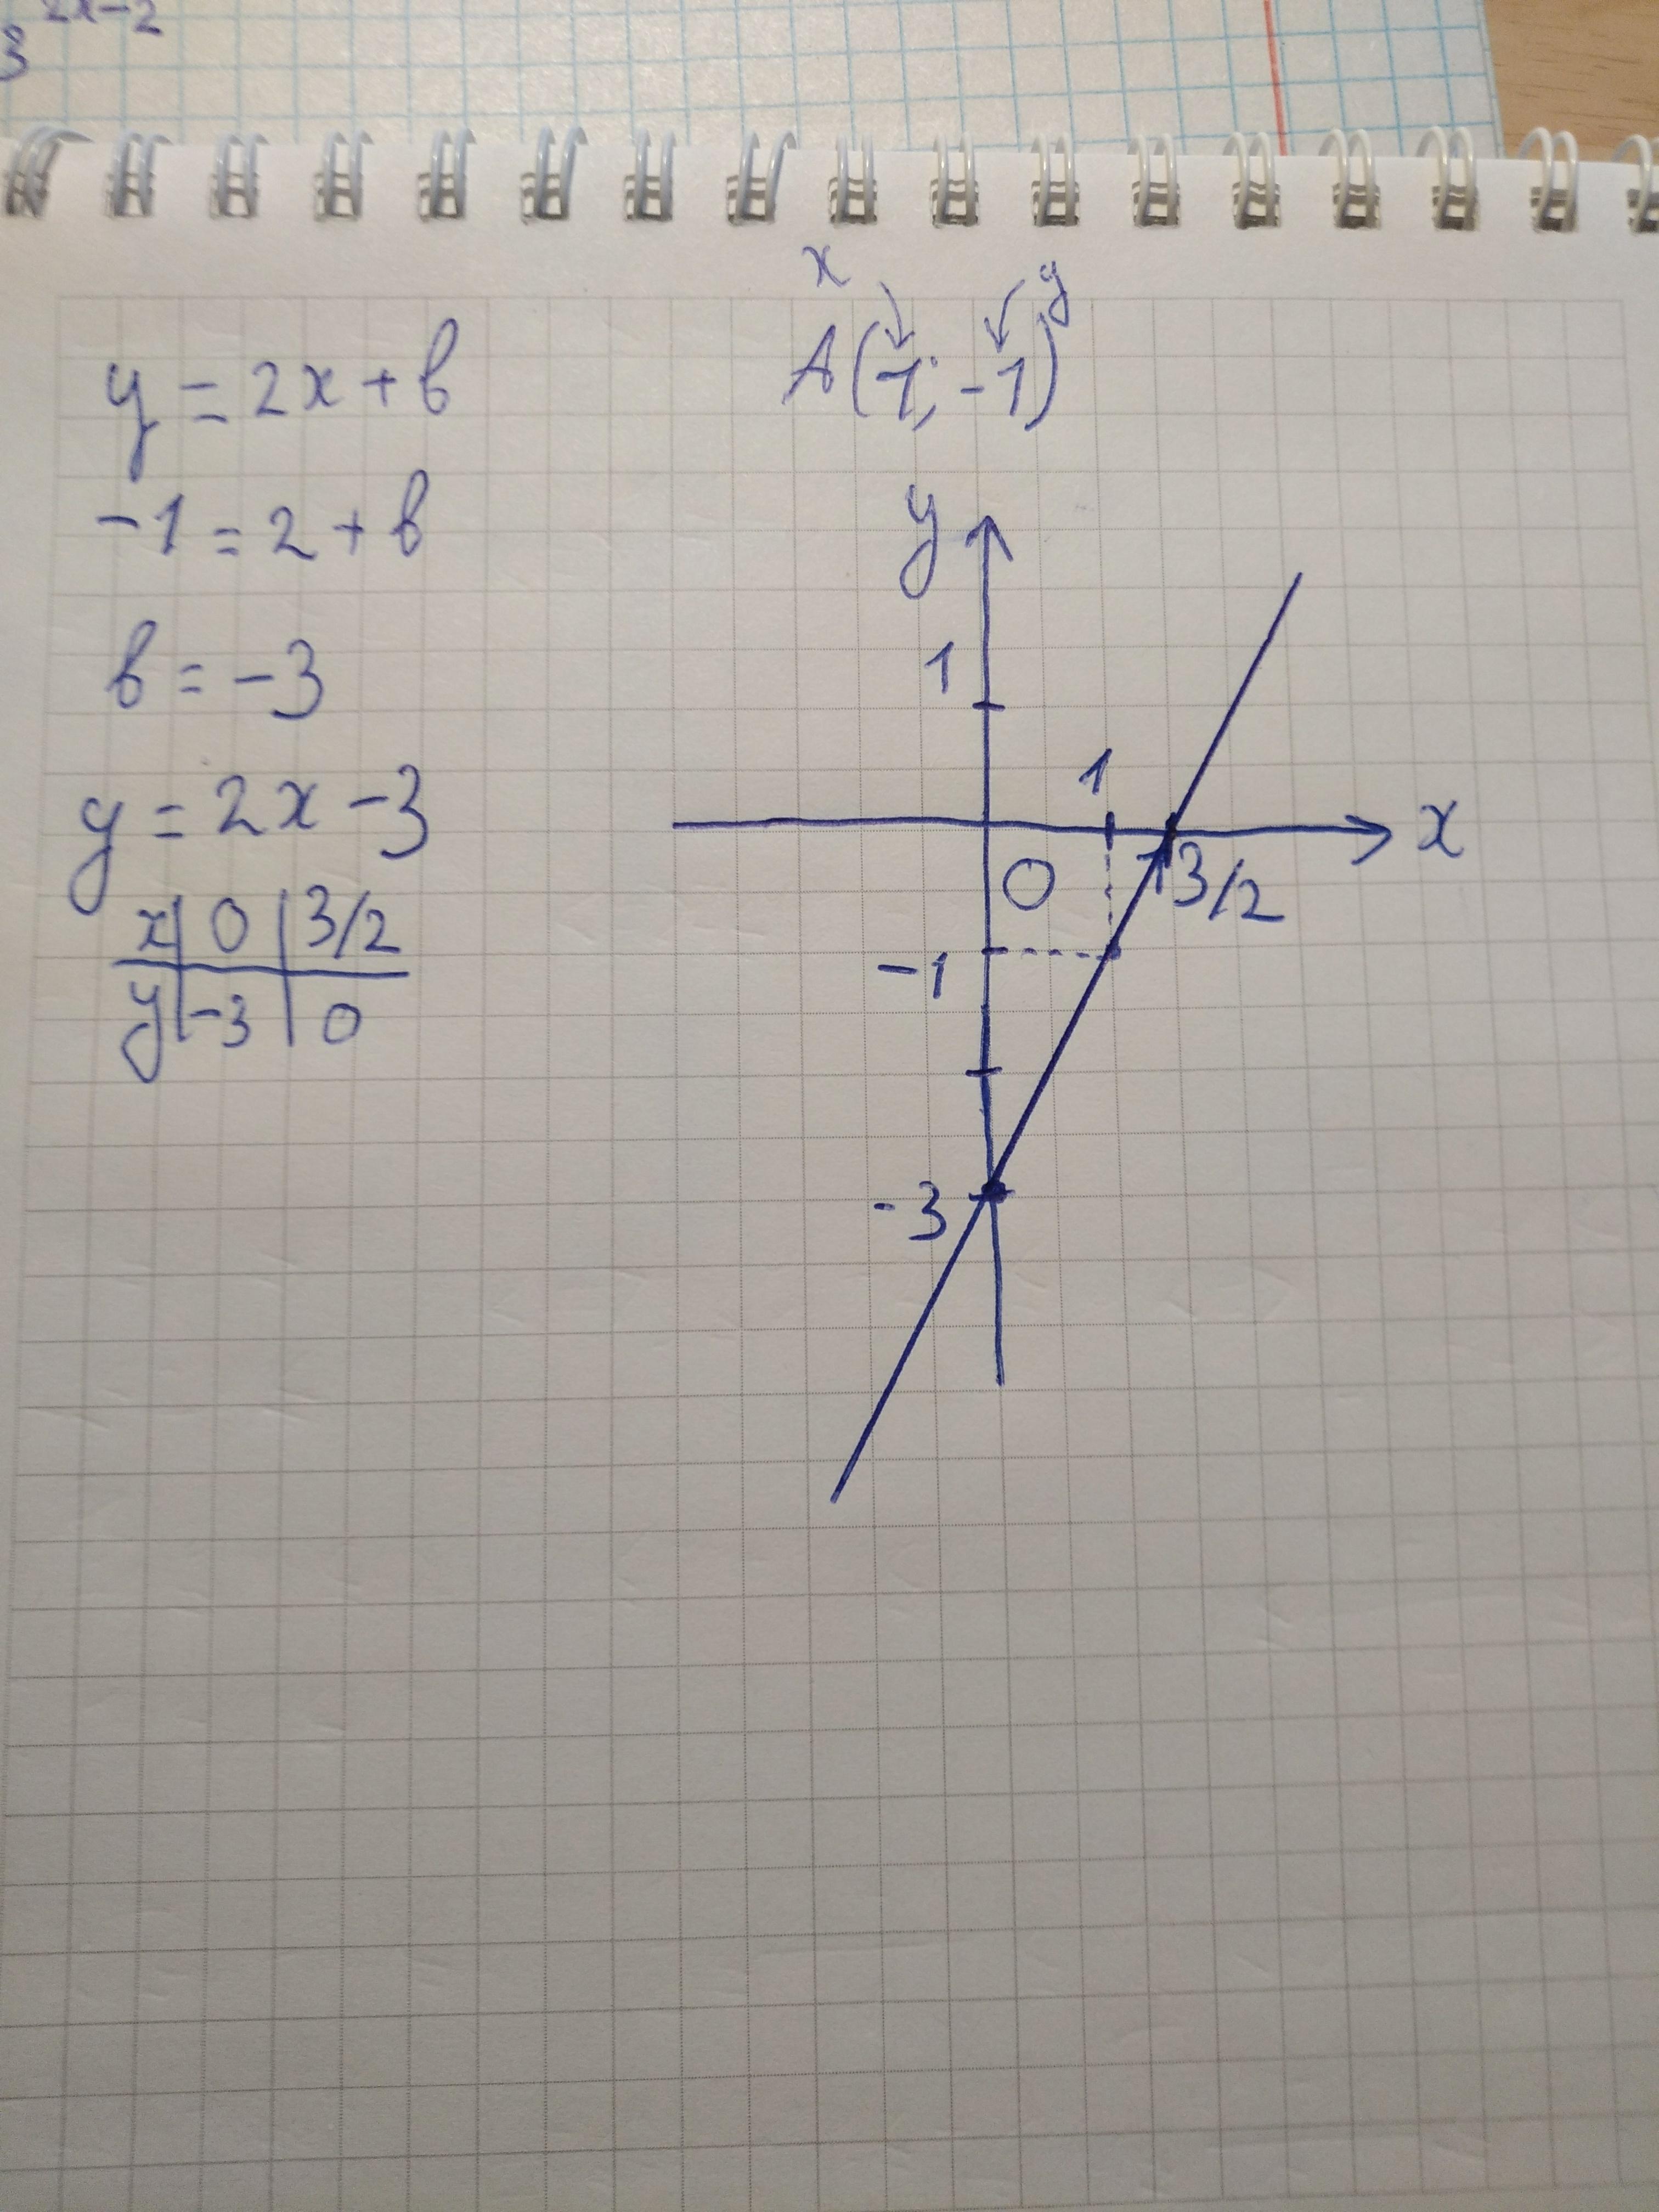 3^{2x-2}
x y
A(1; -1)
y = 2x + b
-1 = 2 + b
b = -3
y = 2x - 3
x | 0 | 3/2
y | -3 | 0
y
1
1
x
0
3/2
-1
-3